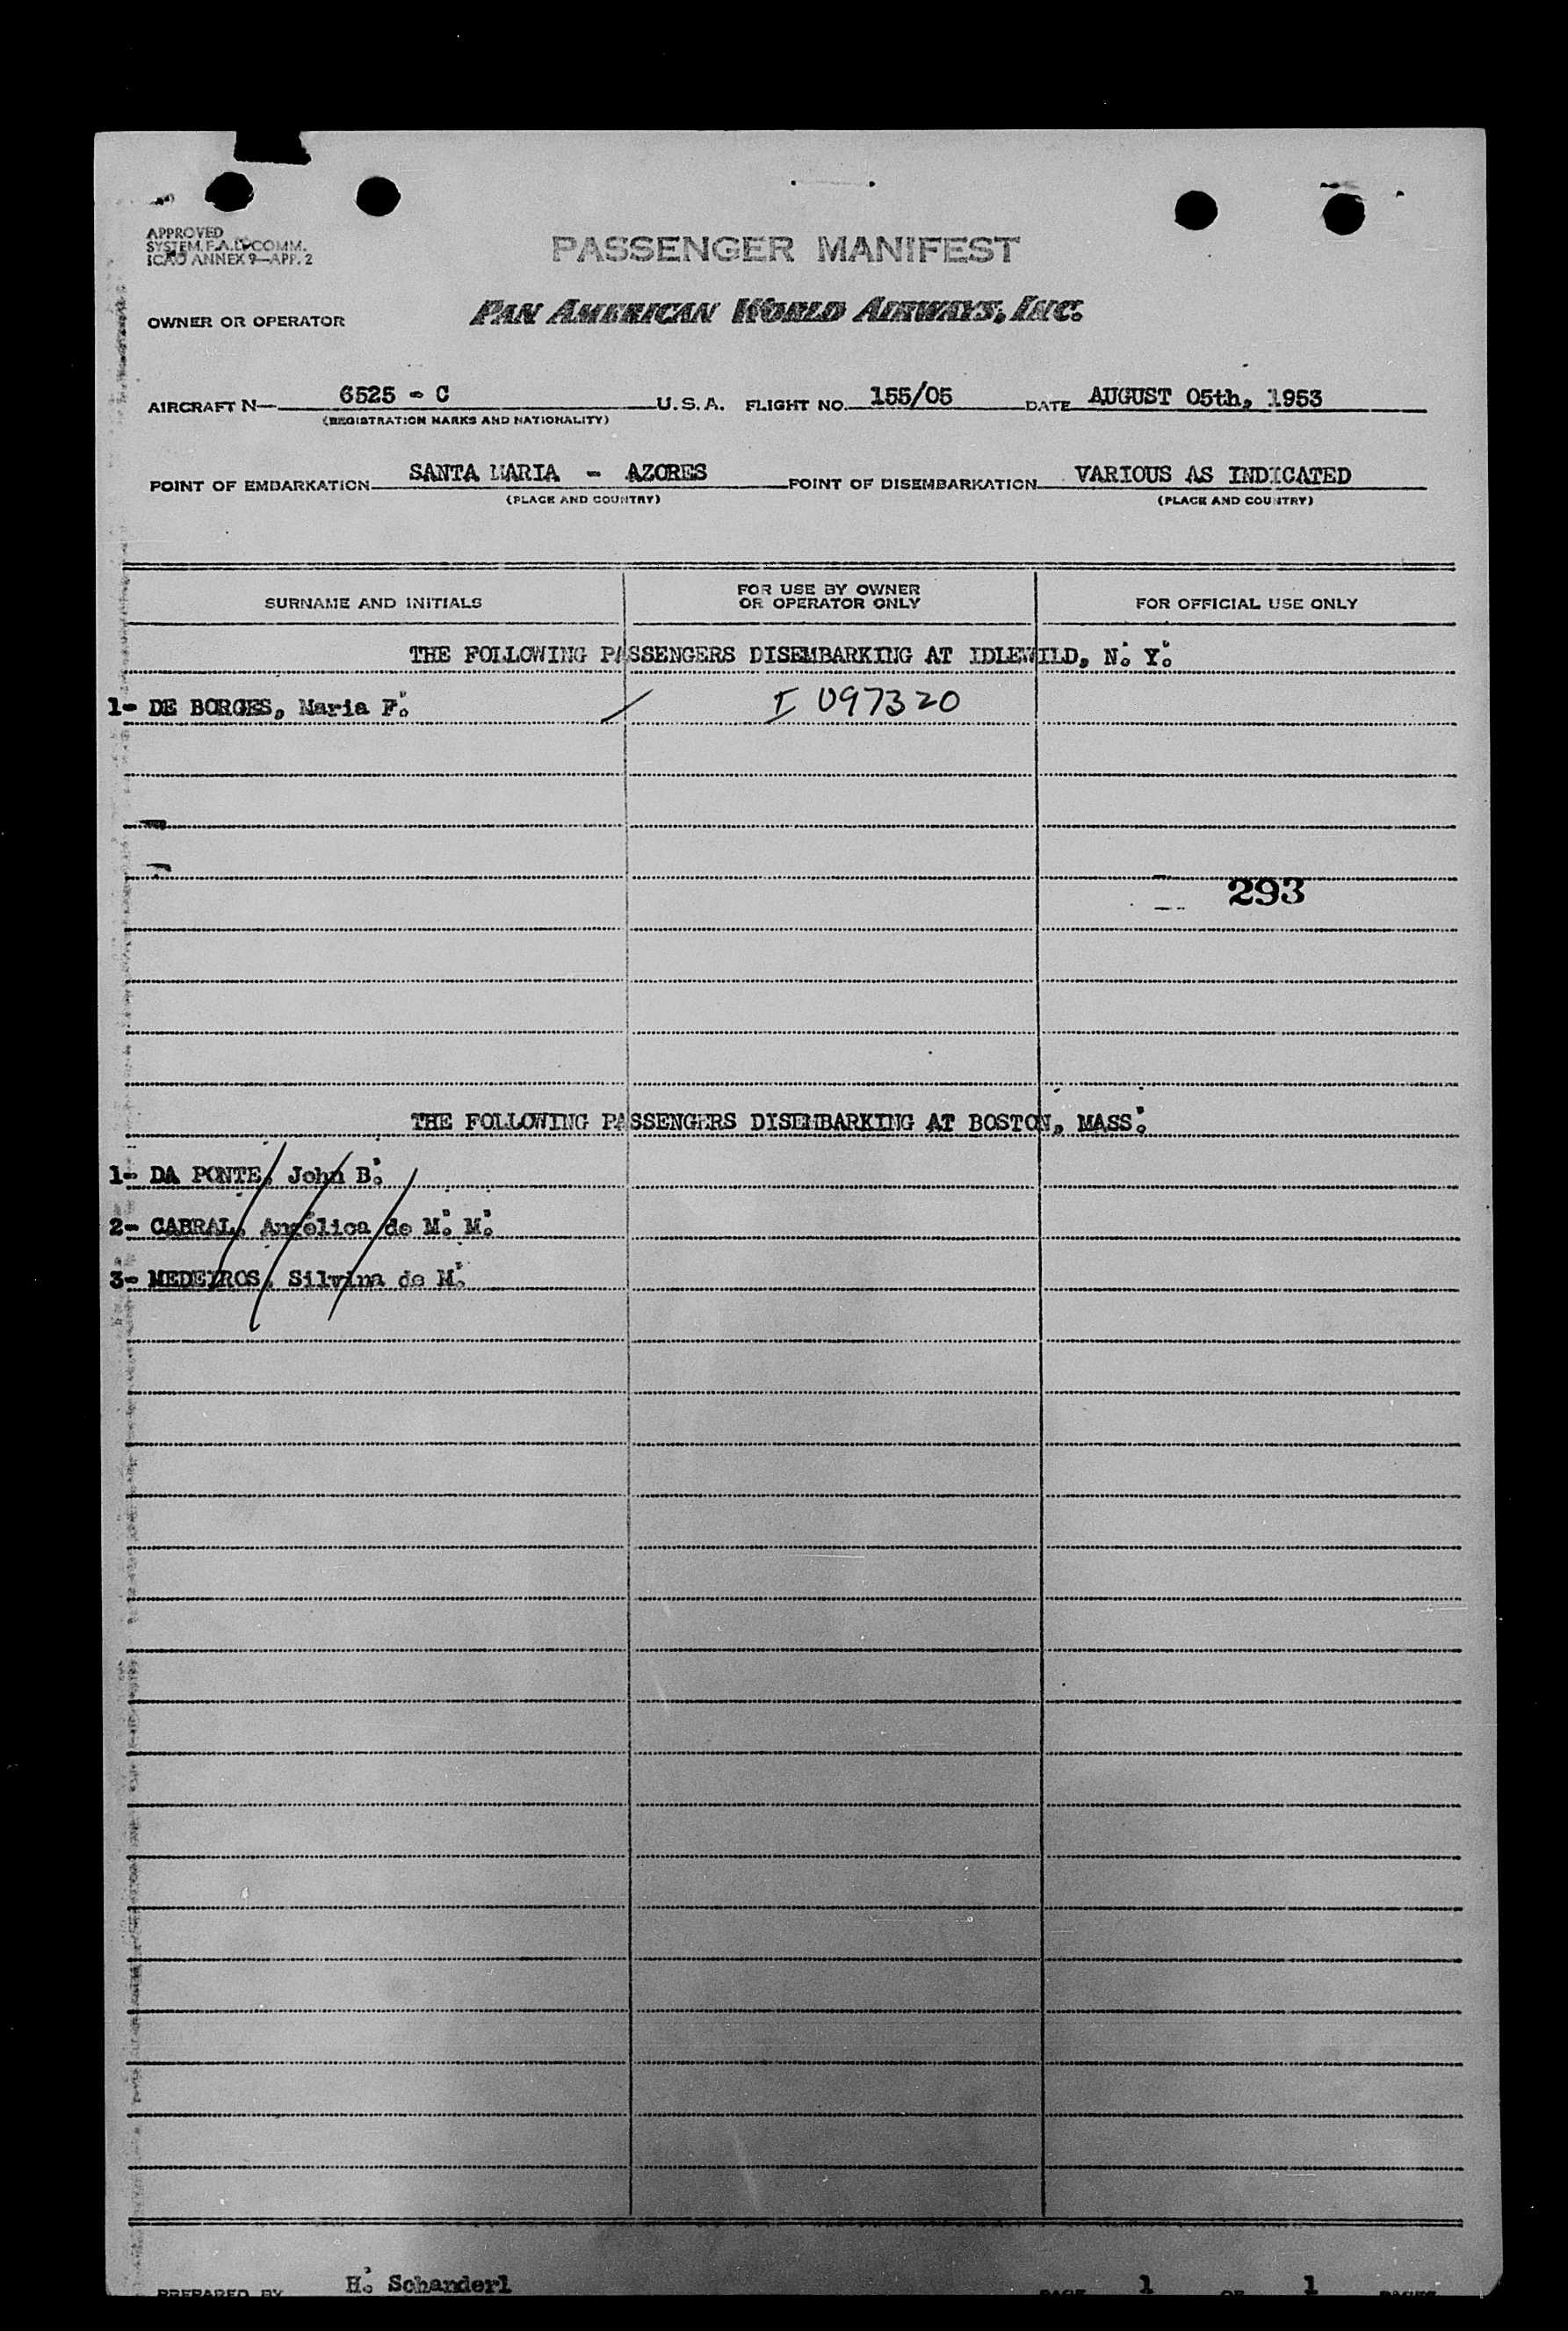 APPROVED
SYSTEM, F.A.L. COMM.
ICAO ANNEX 9—APP. 2
PASSENGER MANIFEST
OWNER OR OPERATOR PAN AMERICAN WORLD AIRWAYS, INC.
AIRCRAFT N— 6525 - C U.S.A. FLIGHT NO. 155/05 DATE AUGUST 05th, 1953
(REGISTRATION MARKS AND NATIONALITY)
POINT OF EMBARKATION SANTA MARIA - AZORES POINT OF DISEMBARKATION VARIOUS AS INDICATED
(PLACE AND COUNTRY) (PLACE AND COUNTRY)
SURNAME AND INITIALS FOR USE BY OWNER OR OPERATOR ONLY FOR OFFICIAL USE ONLY
THE FOLLOWING PASSENGERS DISEMBARKING AT IDLEWILD, N. Y.
1- DE BORGES, Maria F. I 097320
293
THE FOLLOWING PASSENGERS DISEMBARKING AT BOSTON, MASS.
1- DA PONTE, John B.
2- CABRAL, Angélica de M. M.
3- MEDEIROS, Silvina de M.
PREPARED BY H. Schanderl PAGE 1 OF 1 PAGES